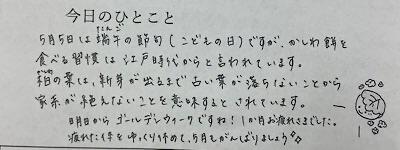 今日のひとこと
たんご
5月5日は端午の節句(こどもの日)ですが、かしわ餅を
食べる習慣は江戸時代からと言われています。
かしわ
柏の葉は、新芽が出るまで古い葉が落ちないことから
家系が絶えないことを意味するとされています。
明日からゴールデンウィークですね!1か月お疲れさまでした。
疲れた体をゆっくり休めて、5月もがんばりましょう